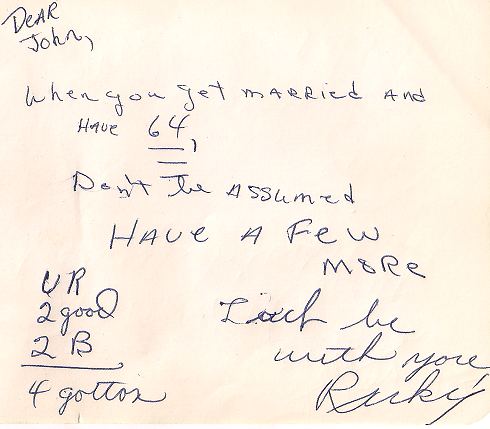 DEAR
John,
When you get MARRIED AND
HAVE 64,
Don't be ASSumed
HAVE A FEW
MORE
UR
2 good
2 B
4 gotton
Luck be
with you
Ricky